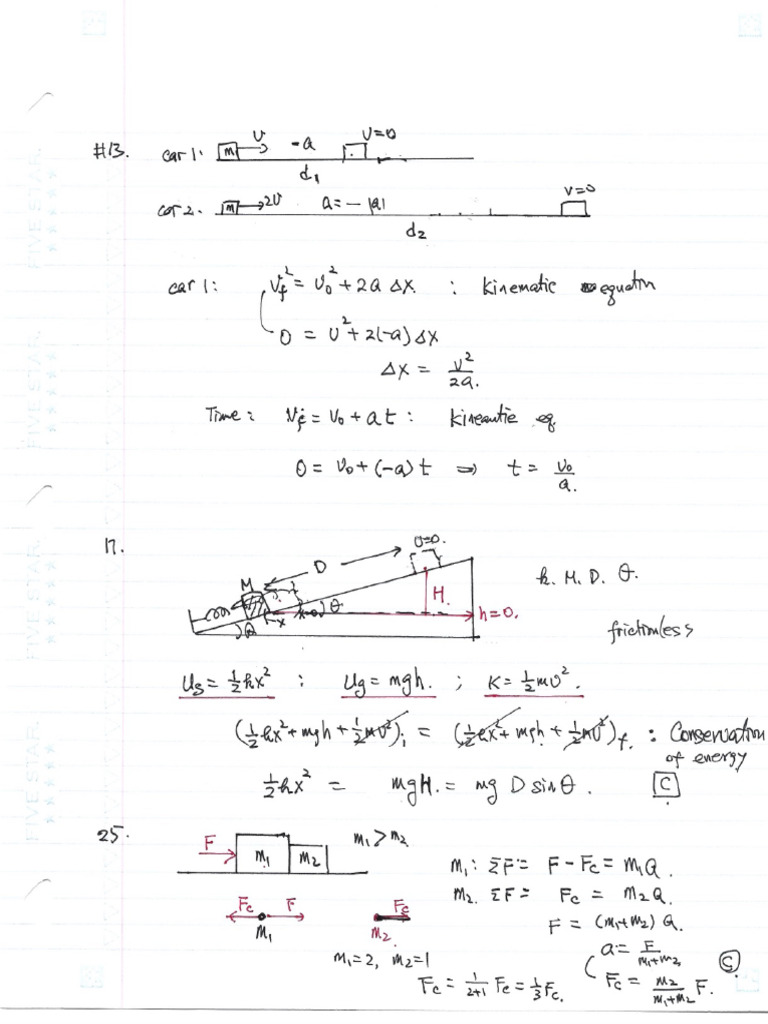 #13. car 1: m v -a v=0
d₁
car 2. m 2v a = -|a| v=0
d₂
car 1: v_f² = v₀² + 2a Δx : kinematic equatn
0 = v² + 2(-a) Δx
Δx = v²/2a.
Time: v_f = v₀ + at : kineamtic eq
0 = v₀ + (-a) t ⇒ t = v₀/a.
17. M D v=0. H. θ x h=0. θ
k. M. D. θ.
frictionless
Us = ½kx² : Ug = mgh. ; K = ½mv².
(½kx² + mgh + ½mv²)i = (½kx² + mgh + ½mv²)f. : Conservation
of energy
½kx² = mgH. = mg D sinθ. C
25. F m₁ m₂ m₁ > m₂
m₁: ΣF = F - Fc = m₁a.
m₂. ΣF = Fc = m₂a.
Fc F m₁ Fc m₂.
F = (m₁+m₂) a.
m₁=2, m₂=1
a = F/m₁+m₂
Fc = 1/2+1 Fc = ⅓Fc.
Fc = m₂/m₁+m₂ F.
FIVE STAR.
FIVE STAR.
FIVE STAR.
FIVE STAR.